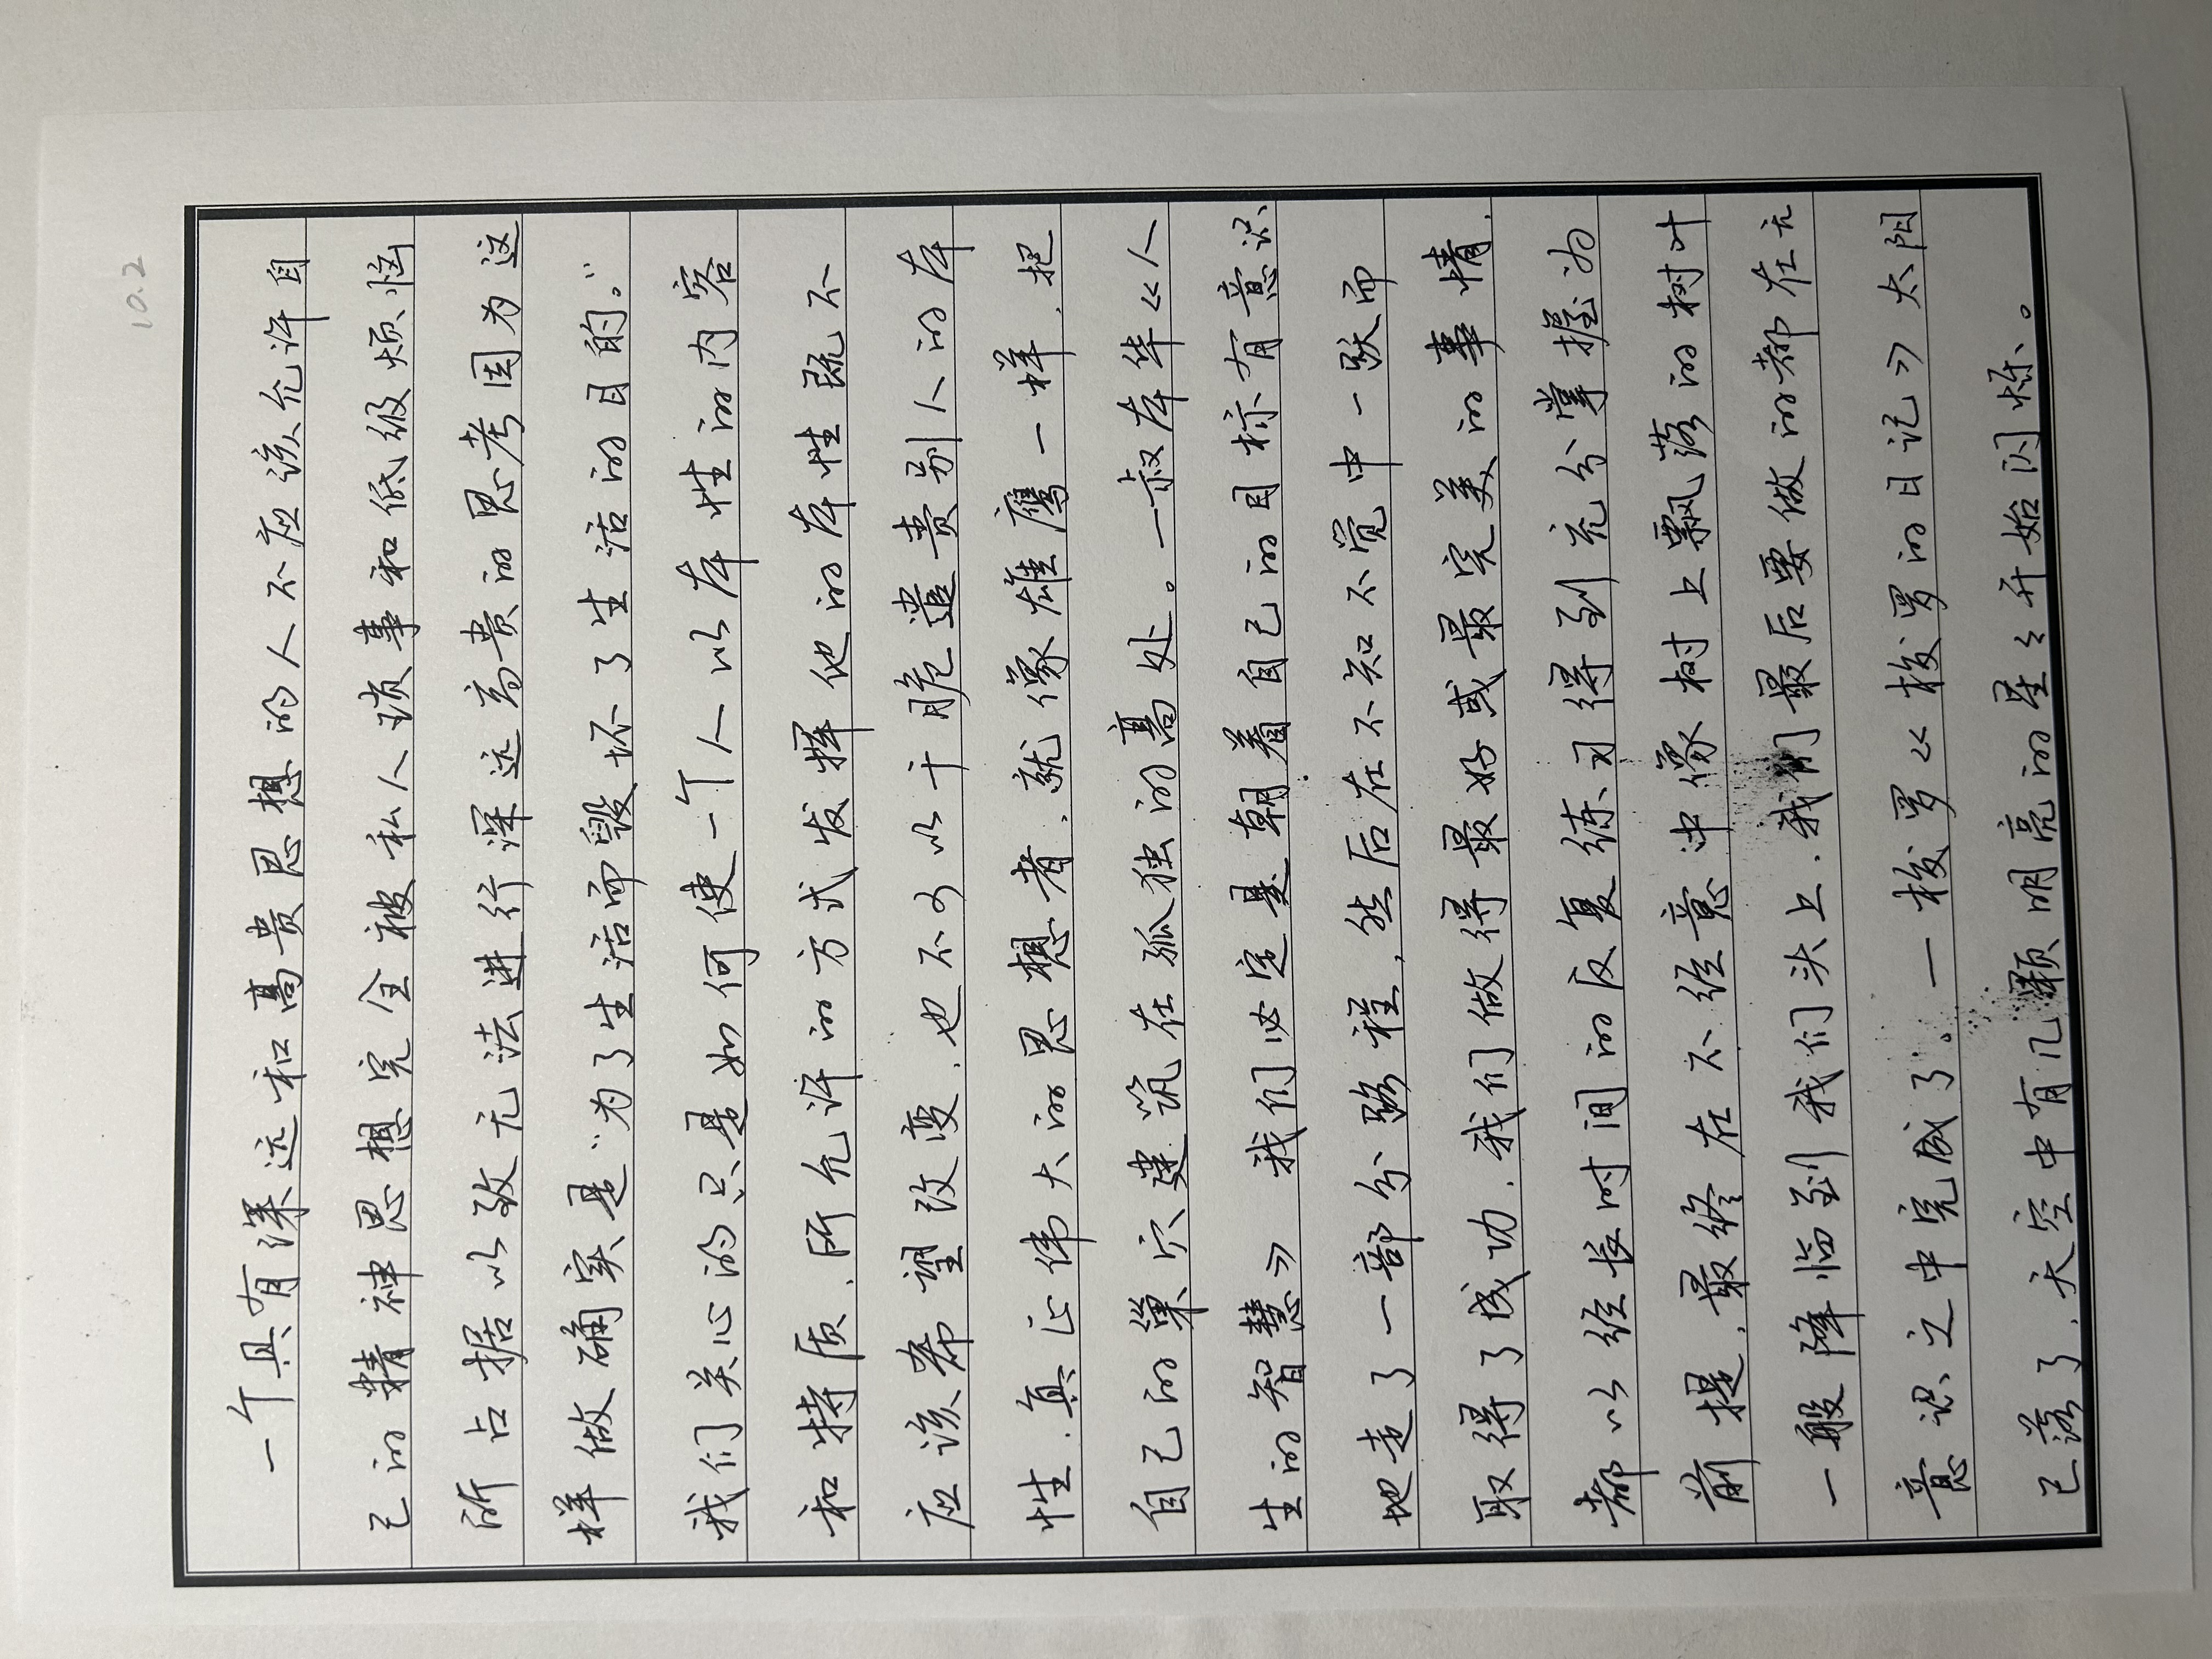 10.2
一个具有深远和高贵思想的人不应该允许自
己的精神思想完全被私人琐事和低级烦恼
所占据以致无法进行深远高贵的思考因为这
样做确实是“为了生活而毁坏了生活的目的。”
我们关心的只是如何使一个人以本性的内容
和特质，所允许的方式发挥他的本性既不
应该希望改变，也不可以干脆谴责别人的本
性，真正伟大的思想者，就像雄鹰一样，把
自己的巢穴建筑在孤独的高处。—叔本华《人
生的智慧》 我们必定是朝着自己的目标有意识
地走了一部分路程，然后在不知不觉中一跃而
取得了成功，我们做得最好或最完美的事情，
都以经长时间的反复练习得到充分掌握为
前提，最终在不经意中像树上飘落的树叶
一般降临到我们头上，我们最后要做的都在无
意识之中完成了。—梭罗《梭罗的日记》太阳
已落了，天空中有几颗明亮的星々开始闪烁。